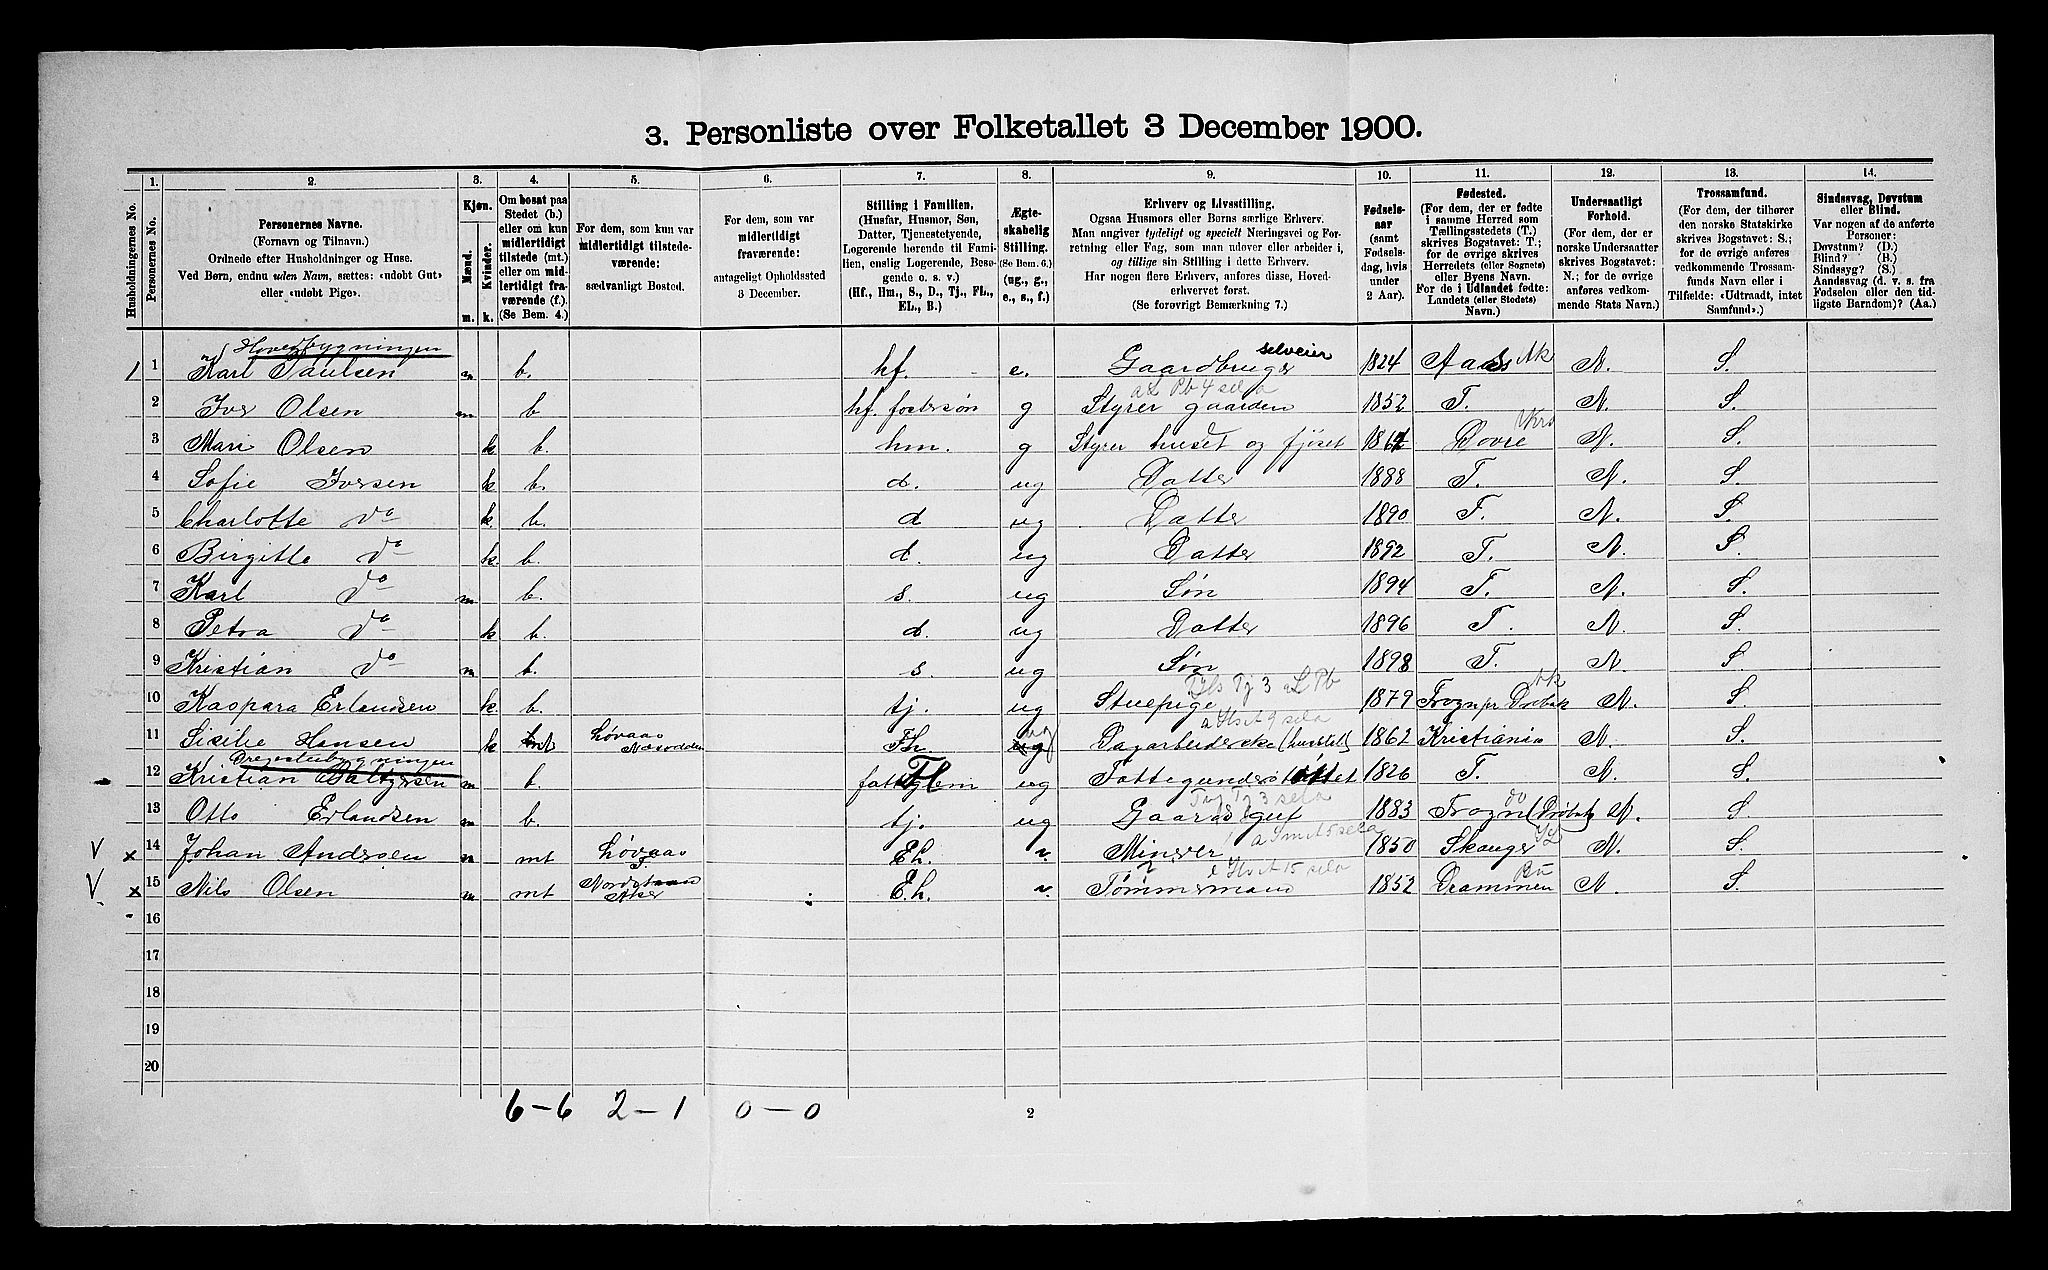 3. Personliste over Folketallet 3 December 1900.
Husholdningernes No.
1. Personernes No.
2. Personernes Navne.
(Fornavn og Tilnavn.)
Ordnede efter Husholdninger og Huse.
Ved Børn, endnu uden Navn, sættes: «udøbt Gut»
eller «udøbt Pige».
3. Kjøn.
Mænd. Kvinder.
m. k.
4. Om bosat paa
Stedet (b.)
eller om kun
midlertidigt
tilstede (mt.)
eller om mid-
lertidigt fra-
værende (f.).
(Se Bem. 4.)
5. For dem, som kun var
midlertidigt tilstede-
værende:
sædvanligt Bosted.
6. For dem, som var
midlertidigt
fraværende:
antageligt Opholdssted
3 December.
7. Stilling i Familien.
(Husfar, Husmor, Søn,
Datter, Tjenestetyende,
Logerende hørende til Fami-
lien, enslig Logerende, Besø-
gende o. s. v.)
(Hf., Hm., S., D., Tj., FL.,
EL., B.)
8. Ægte-
skabelig
Stilling.
(Se Bem. 6.)
(ug., g.,
e., s., f.)
9. Erhverv og Livsstilling.
Ogsaa Husmors eller Børns særlige Erhverv.
Man angiver tydeligt og specielt Næringsvei og For-
retning eller Fag, som man udøver eller arbeider i,
og tillige sin Stilling i dette Erhverv.
Har nogen flere Erhverv, anføres disse, Hoved-
erhvervet først.
(Se forøvrigt Bemærkning 7.)
10. Fødsels-
aar
(samt
Fødsels-
dag, hvis
under
2 Aar).
11. Fødested.
(For dem, der er fødte
i samme Herred som
Tællingsstedets (T.)
skrives Bogstavet: T.;
for de øvrige skrives
Herredets (eller Sognets)
eller Byens Navn.
For de i Udlandet fødte:
Landets (eller Stedets)
Navn.)
12. Undersaatligt
Forhold.
(For dem, der er
norske Undersaatter
skrives Bogstavet:
N.; for de øvrige
anføres vedkom-
mende Stats Navn.)
13. Trossamfund.
(For dem, der tilhører
den norske Statskirke
skrives Bogstavet: S.;
for de øvrige anføres
vedkommende Trossam-
funds Navn eller i
Tilfælde: «Udtraadt, intet
Samfund».)
14. Sindssvag, Døvstum
eller Blind.
Var nogen af de anførte
Personer:
Døvstum? (D.)
Blind? (B.)
Sindssyg? (S.)
Aandssvag (d. v. s. fra
Fødselen eller den tid-
ligste Barndom)? (Aa.)
Hovedbygningen
1 1 Karl Paulsen m b. hf. e. Gaardbruger selveier 1824 Aas Ak N. S.
2 Iver Olsen m b hf. fostersøn g Styrer gaarden 1852 T. N. S.
3 Mari Olsen k b. hm. g Styrer huset og fjøset 1864 Dovre N. S.
4 Sofie Iversen k b. d. ug Datter 1888 T. N. S.
5 Charlotte do k. b. d ug Datter 1890 T. N. S.
6 Birgitte do k. b. d. ug Datter 1892 T. N. S.
7 Karl do m b. s. ug Søn 1894 T. N. S.
8 Petra do k b. d. ug Datter 1896 T. N. S.
9 Kristian do m b. s. ug Søn 1898 T. N. S.
10 Kaspara Erlandsen k. b. tj. ug Stuepige 1879 Frogn pr Drøbak Ak N. S.
11 Sisilie Hansen k mt Løvaas Næsodden Fl ug Dagarbeiderske (husstel) 1862 Kristiania N. S.
Drengestubygningen
12 Kristian Baltzersen m b. Fl ug Fattigunderstøttet 1826 T. N. S.
13 Otto Erlandsen m b. tj. ug Gaardsgut 1883 Frogn (Drøbak) do N. S.
14 Johan Andersen m mt Løvaas T. E.L. Minerer 1850 Skauger N. S.
15 Nils Olsen m mt Nordstrand Aker E.L. Tømmermand 1852 Drammen Bu N. S.
16
17
18
19
20
6–6 2–1 0–0
2